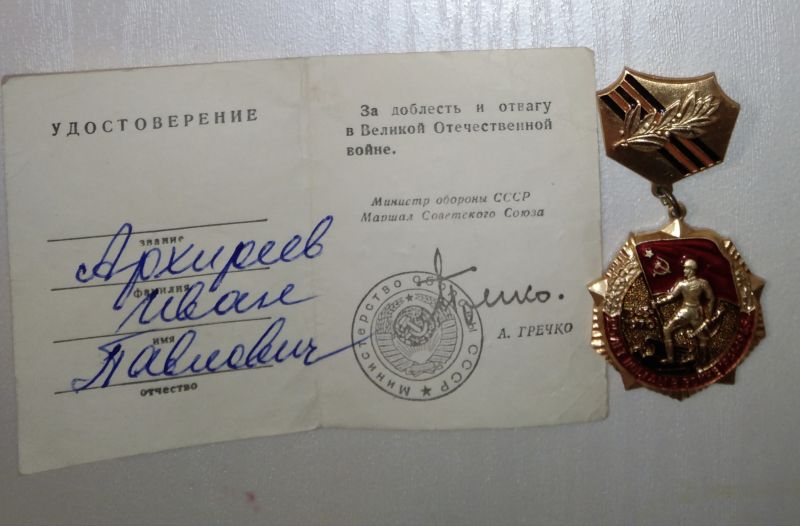 УДОСТОВЕРЕНИЕ
звание
Архиреев
фамилия
Иван
имя
Павлович
отчество
За доблесть и отвагу
в Великой Отечественной
войне.
Министр обороны СССР
Маршал Советского Союза
Гречко.
А. ГРЕЧКО
Министерство Обороны СССР